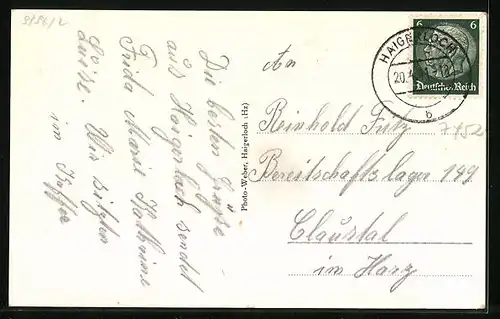 9186/2
Die besten Grüsse
aus Haigerloch sendet
Frida Marie Kathrine
Luise. Wir sitzen
im Kaffee
Photo-Weber, Haigerloch (Hz)
HAIGERLOCH
20.
b
6 6
Deutsches Reich
An
Reinhold Lutz
Bereitschaftslager 199
Claustal
im Harz